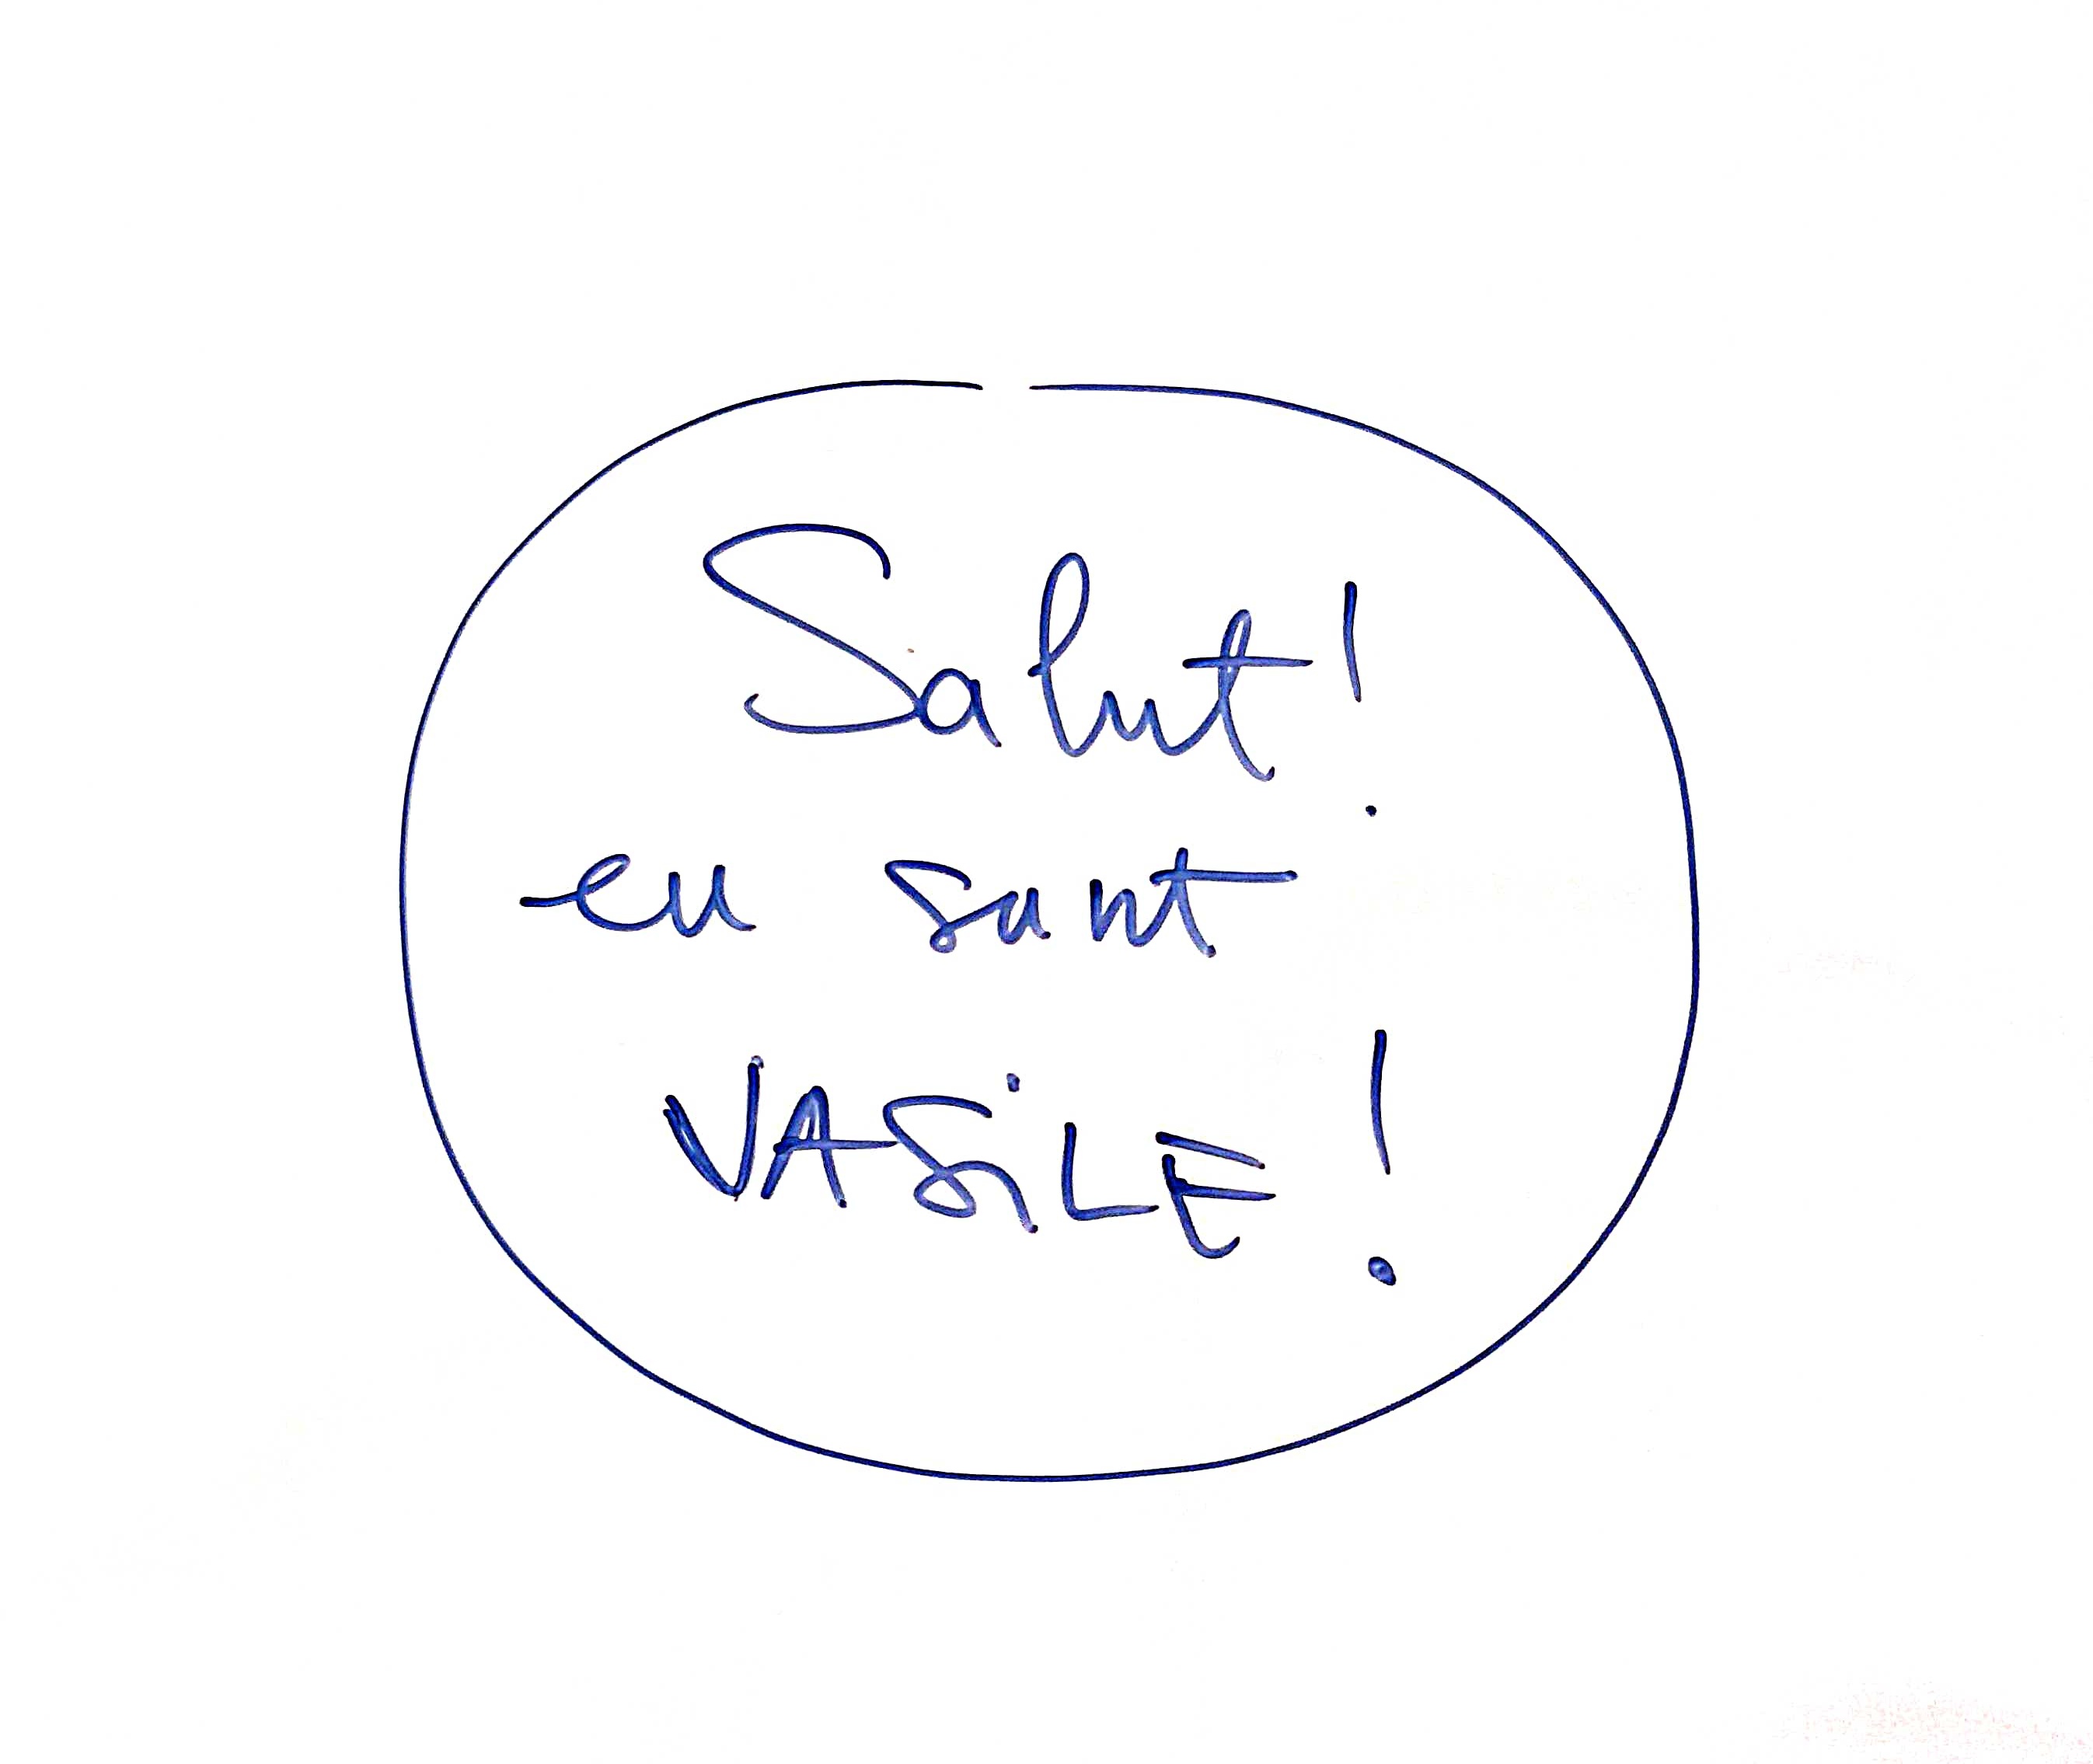 Salut!
eu sunt
VASiLE!